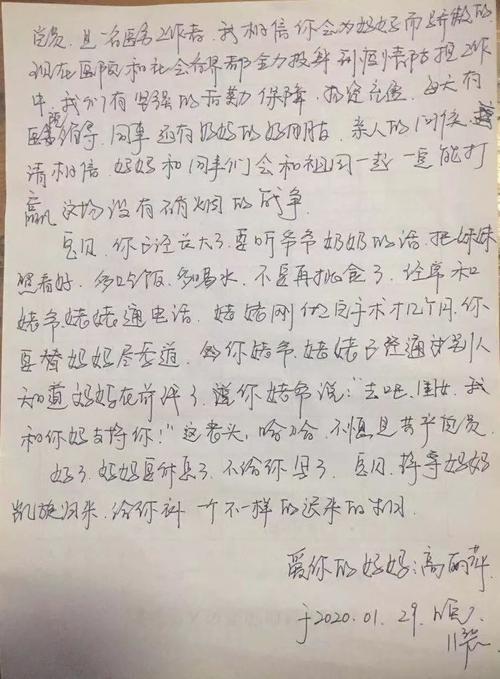 党员,且一名医务工作者,我相信你会为妈妈而骄傲的
现在医院和社会各界都全力投身到疫情防控工作
中,我们有坚强的后勤保障,物资充足,每天有
医院领导、同事还有妈妈的好朋友、亲人的问候,
请相信,妈妈和同事们会和祖国一起一定能打
赢这场没有硝烟的战争。
豆贝,你已经长大了,要听爷爷奶奶的话,把妹妹
照看好,多吃饭,多喝水,不要再挑食了,经常和
姥爷姥姥通电话,姥姥刚做完手术才几个月,你
要替妈妈尽孝道,你姥爷、姥姥已经通过别人
知道妈妈在前线了,你姥爷说:“去吧,闺女,我
和你妈支持你!”这老头,哈哈,不愧是老党员。
好了,妈妈要休息了,不给你写了,豆贝,等妈妈
凯旋归来,给你补一个不一样的迟来的
爱你的妈妈:高丽萍
于2020.01.29.晚
11: